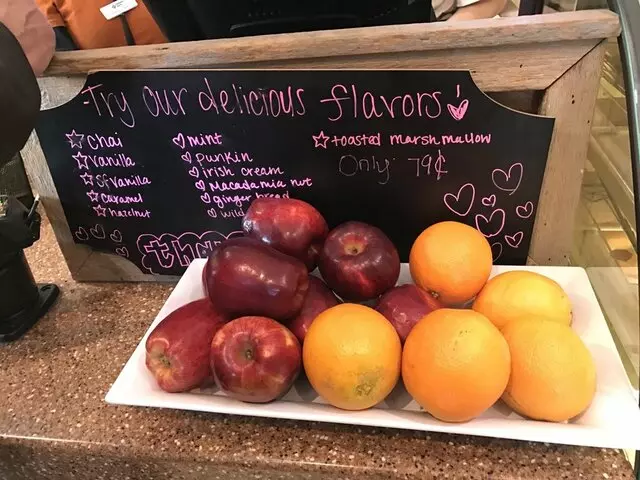 Try our delicious flavors!
chai
vanilla
SF vanilla
caramel
hazelnut
mint
punkin
irish cream
Macadamia nut
toasted marshmallow
Only 79¢